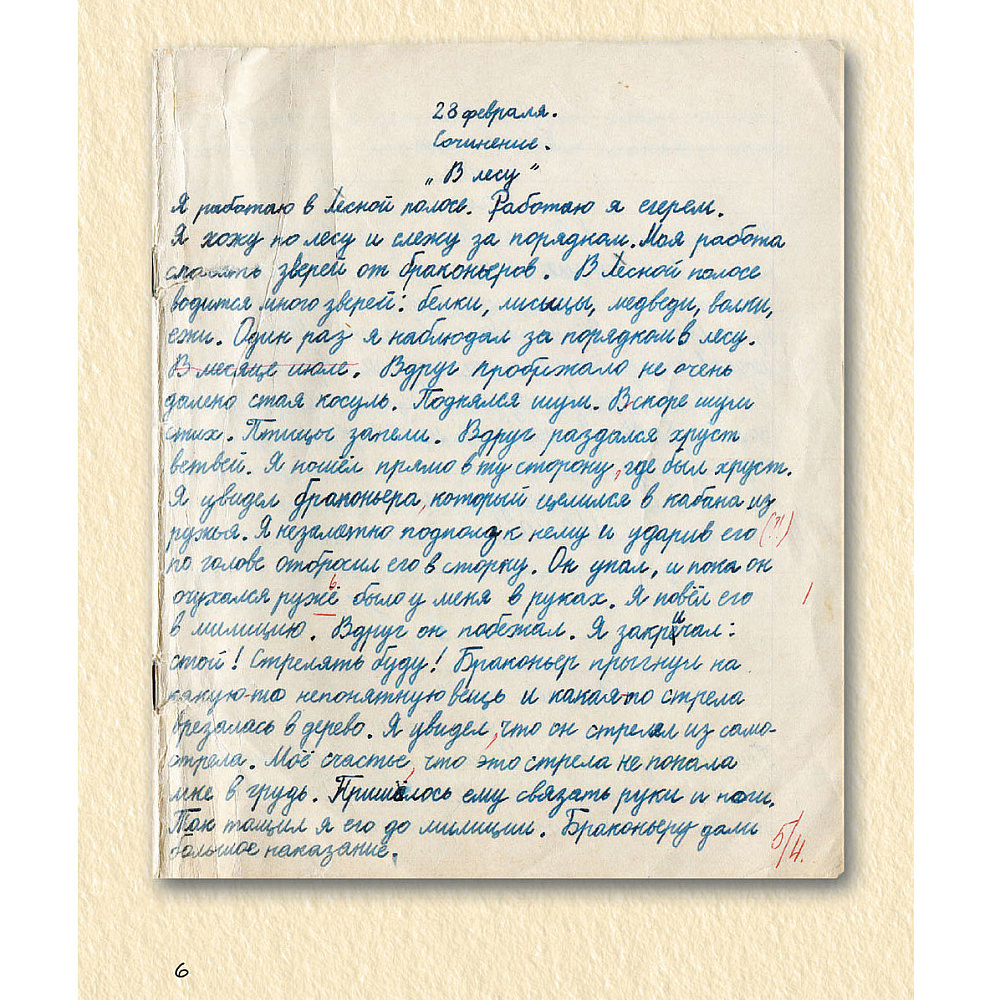 28 февраля.
Сочинение.
„В лесу"
Я работаю в Лесной полосе. Работаю я егерем.
Я хожу по лесу и слежу за порядком. Моя работа
спасать зверей от браконьеров. В Лесной полосе
водится много зверей: белки, лисицы, медведи, волки,
ежи. Один раз я наблюдал за порядком в лесу.
В месяце июле. Вдруг пробежало не очень
далеко стая косуль. Поднялся шум. Вскоре шум
стих. Птицы запели. Вдруг раздался хруст
ветвей. Я пошёл прямо в ту сторону, где был хруст.
Я увидел браконьера, который целился в кабана из
ружья. Я незаметно подполз к нему и ударив его (?!)
по голове отбросил его в сторку. Он упал, и пока он
очухался ружё было у меня в руках. Я повёл его
в милицию. Вдруг он побежал. Я закричал:
стой! Стрелять буду! Браконьер прыгнул на
какую-то непонятную вещь и какая-то стрела
врезалась в дерево. Я увидел, что он стрелял из само-
стрела. Моё счастье, что это стрела не попала
мне в грудь. Пришлось ему связать руки и ноги.
Так тащил я его до милиции. Браконьеру дали
большое наказание.
5/4.
6